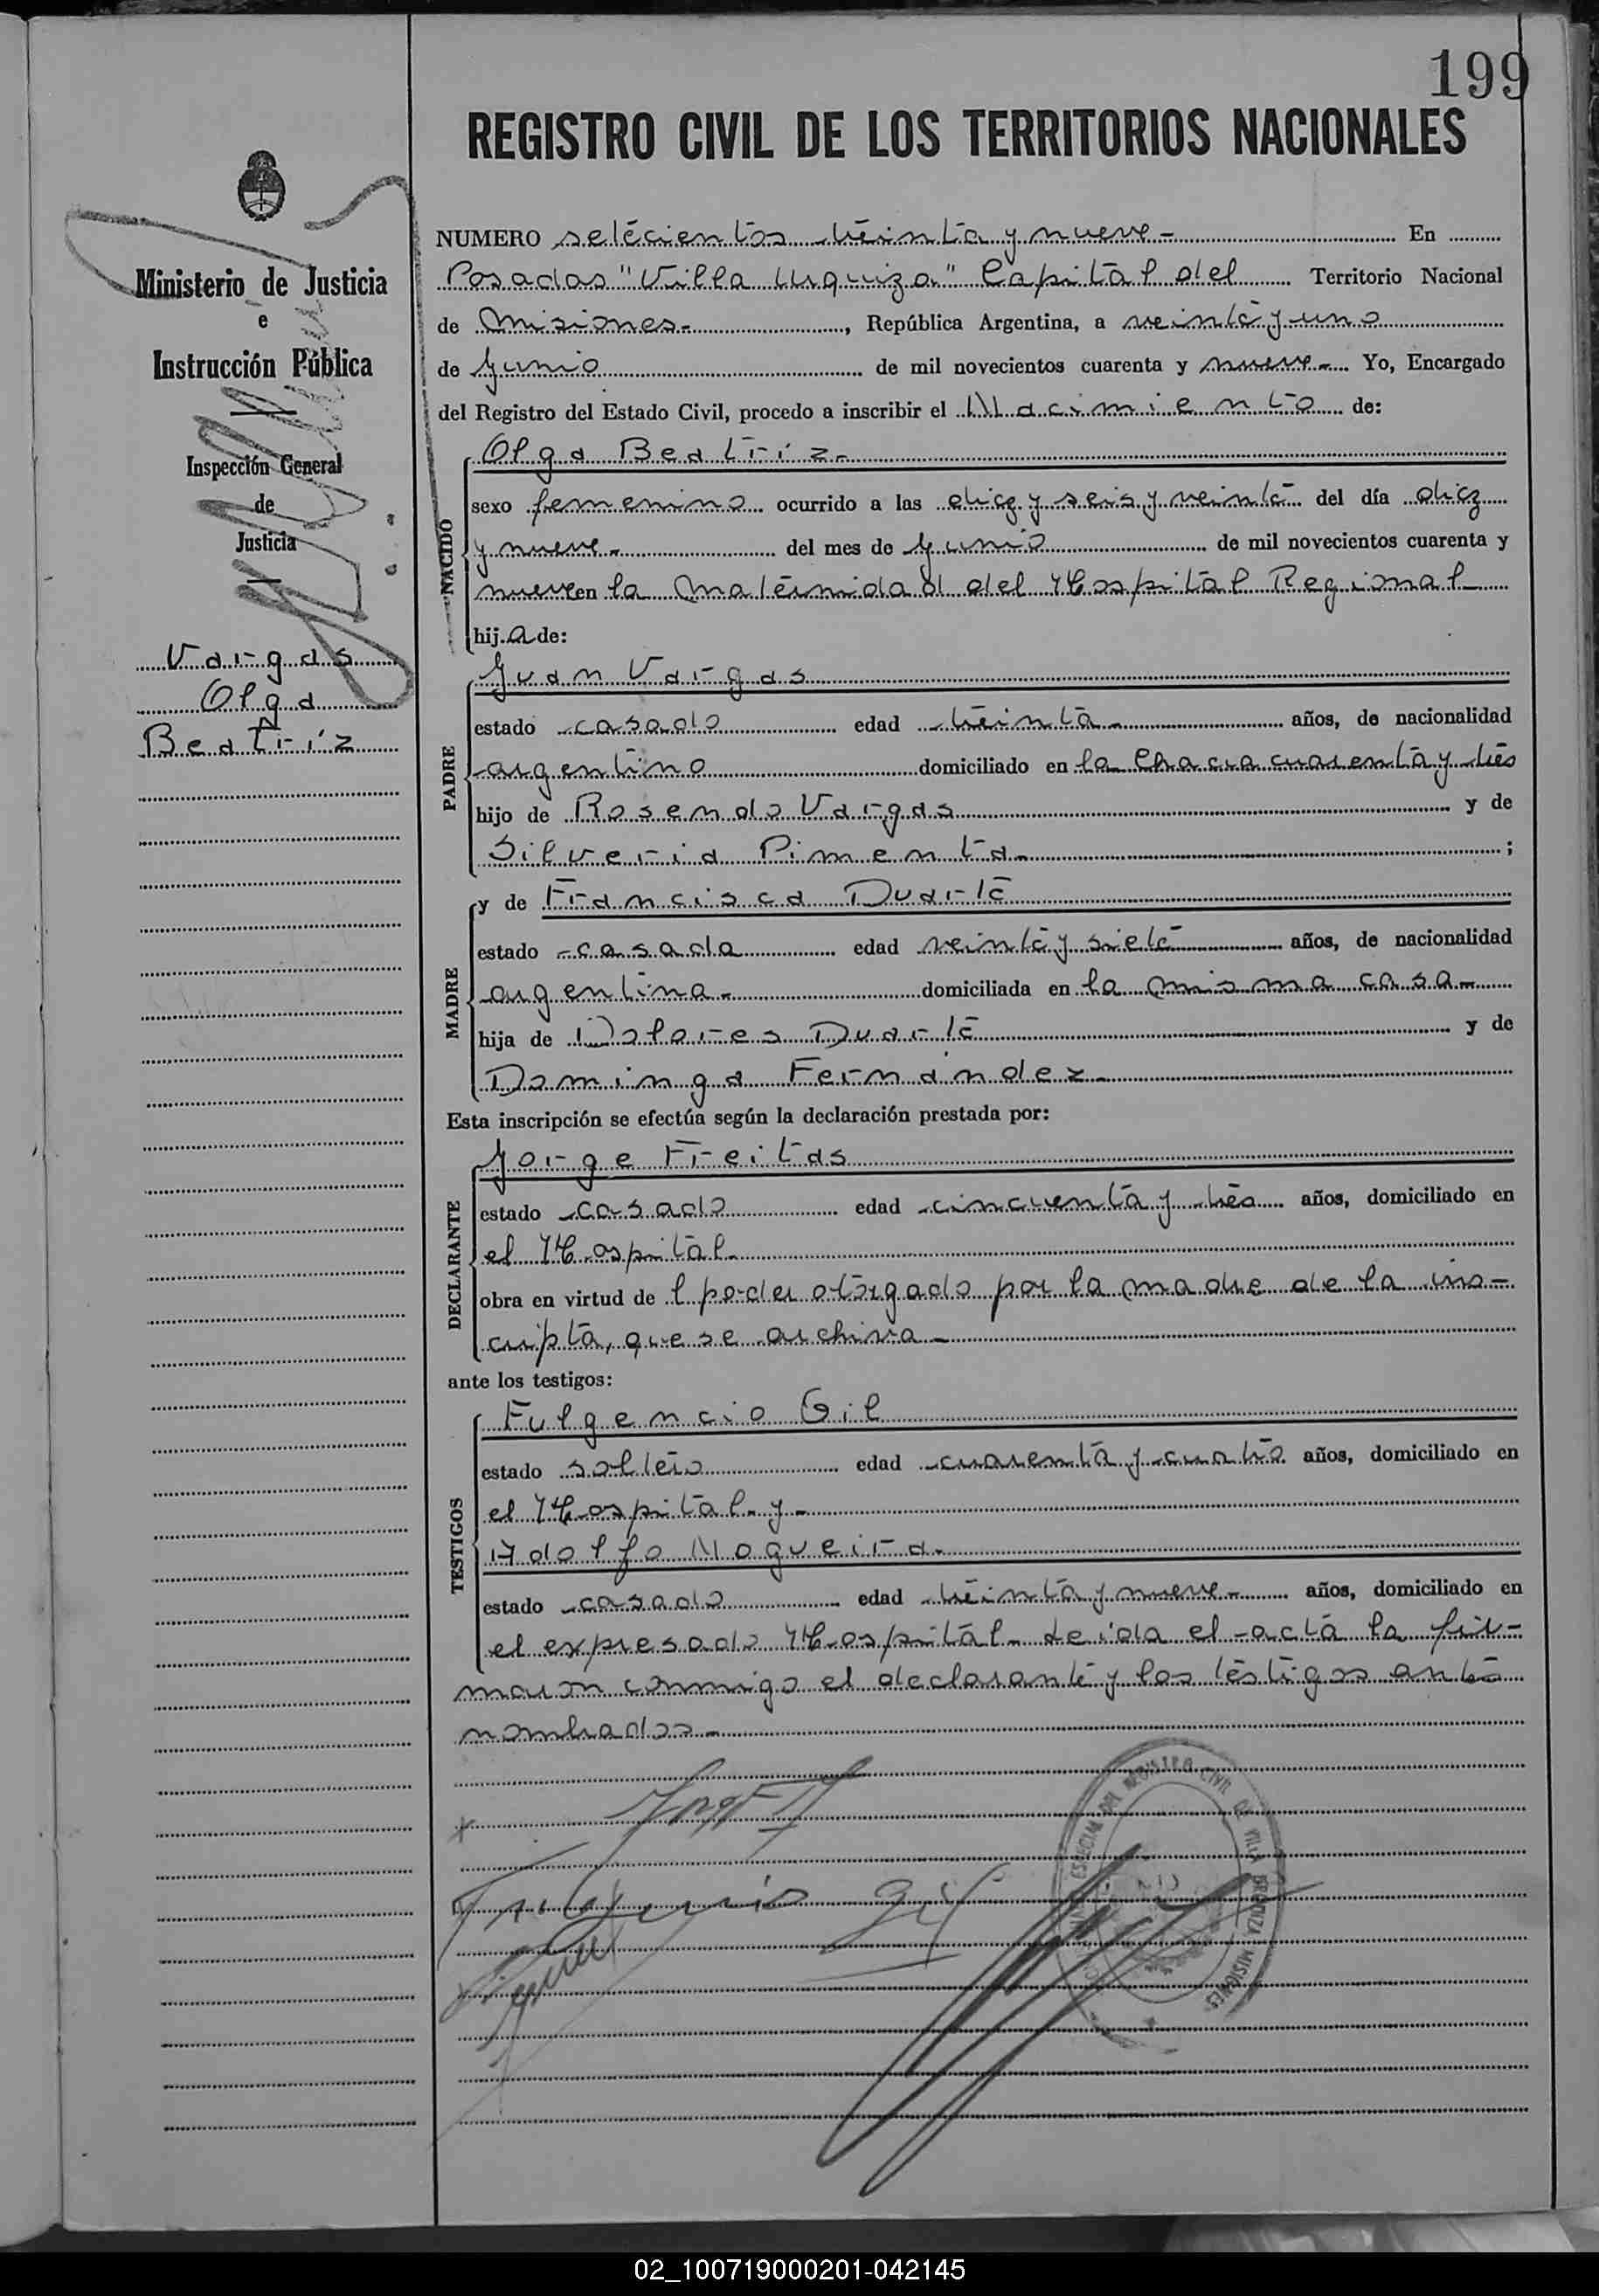 199
REGISTRO CIVIL DE LOS TERRITORIOS NACIONALES
Ministerio de Justicia
e
Instrucción Pública
Inspección General
de
Justicia
Vargas
Olga
Beatriz
NUMERO setecientos treinta y nueve- En
Posadas "Villa Urquiza" Capital del Territorio Nacional
de Misiones-, República Argentina, a veinte y uno
de Junio de mil novecientos cuarenta y nueve- Yo, Encargado
del Registro del Estado Civil, procedo a inscribir el Nacimiento de:
NACIDO
Olga Beatriz-
sexo femenino ocurrido a las diez y seis y veinte del día diez
y nueve- del mes de Junio de mil novecientos cuarenta y
nueve en la Maternidad del Hospital Regional
hija de:
PADRE
Juan Vargas
estado casado edad treinta- años, de nacionalidad
argentino domiciliado en la Chacra cuarenta y tres
hijo de Rosendo Vargas y de
Silveria Pimenta- ;
MADRE
y de Francisca Duarte
estado casada edad veinte y siete años, de nacionalidad
argentina- domiciliada en la misma casa-
hija de Dolores Duarte y de
Dominga Fernandez-
Esta inscripción se efectúa según la declaración prestada por:
DECLARANTE
Jorge Freitas
estado casado edad cincuenta y tres años, domiciliado en
el Hospital-
obra en virtud de l poder otorgado por la madre de la ins-
cripta, que se archiva-
ante los testigos:
TESTIGOS
Fulgencio Gil
estado soltero edad cuarenta y cuatro años, domiciliado en
el Hospital- y-
Adolfo Nogueira-
estado casado edad treinta y nueve- años, domiciliado en
el expresado Hospital- Leída el acta la fir-
maron conmigo el declarante y los testigos antes
nombrados-
Fulgencio Gil
ESPECIAL DEL REGISTRO CIVIL DE VILLA URQUIZA MISIONES
02_100719000201-042145